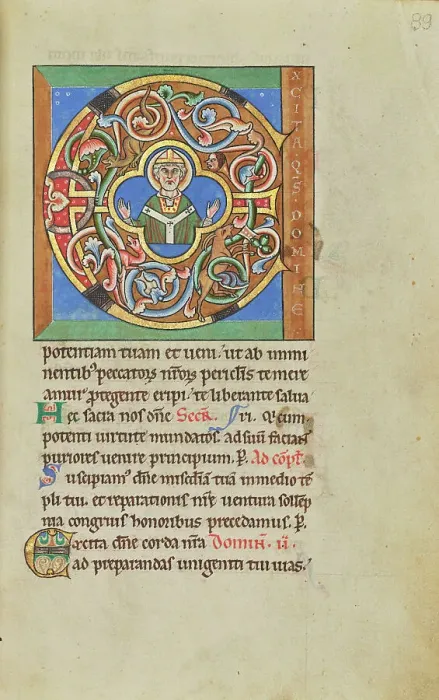 89
E
XCITA QS DOMINE
potentiam tuam et ueni. ut ab immi
nentib' peccatorꝫ nr̄oꝝ periclis te mere
amur ꝓtegente eripi. te liberante salua
Hec sacra nos dn̄e Secr̄. ri. Q̄ cum
potenti uirtute mundatos. ad suū faciant
puriores uenire principium. P. Ad cōpl̄.
Suscipiam' dn̄e misc̄diā tuā in medio tē
pli tui. et reparationis nr̄e uentura sollēp
nia congruis honoribus precedamus. P.
Excita dn̄e corda nr̄a Dominic̄. ii.
ad preparandas unigeniti tui uias.